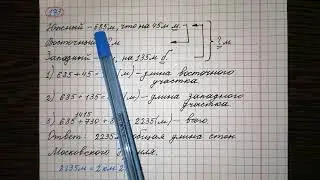 193
Южный – 685 м, что на 45 м м.
Восточный м ? м
Западный м, на 135 м б.
1) 685 + 45 (м) – длина восточного
участка
2) 685 + 135 (м) – длина западного
участка
1415
3) 685 + 730 + 2235 (м) – всего
Ответ: 2235 м общая длина стен
Московского
2235 м = 2 км 2